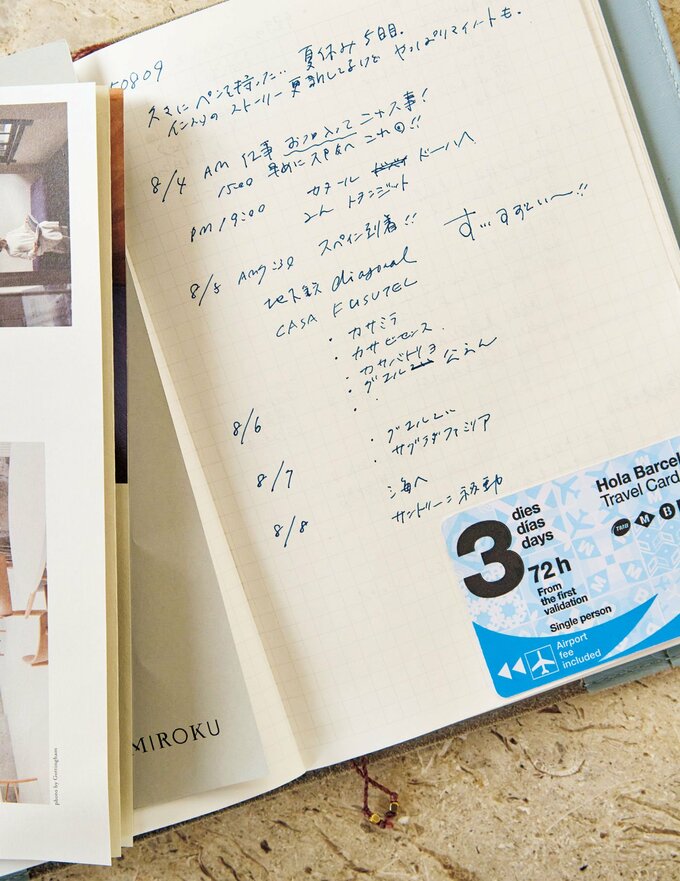 50809
久々にペンを持った… 夏休み5日目.
インスタのストーリー更新してるけど やっぱりマイノートも.
8/4 AM 仕事
1500 早めに
PM 19:00 カタール ドーハへ
トランジット
8/5 AM 9:30 スペイン到着!! す…すずしい〜!!
地下鉄 diagonal
CASA FUSUTEL
・カサミラ
・カサビセンス
・カサバトリョ
・グエル 公えん
・
8/6 ・グエル
・サグラダファミリア
8/7 海へ
8/8 サンドリーニ移動
3 dies días days
72h
From the first validation
Single person
Airport fee included
Hola Barcel
Travel Card
TMB M B
MIROKU
photo by Gottingham